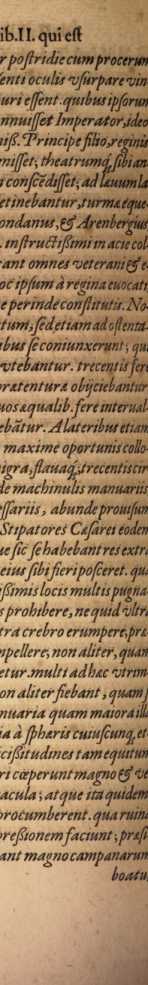 ib.II. qui est
r postridie cum procerum
senti oculis vsurpare vin
uri essent. quibus ipsorum
nnuisset Imperator, ideo
niss. Principe filio, reginis
misset, theatrumq́, sibi an
i conscēdisset; ad læuum la
etinebantur, turmæ eque
ondanus, & Arenbergius
. instructissimi in acie coll
rant omnes veterani & e
oc ipsum à regina euocati
e perinde constitutis. No
tum, sed etiam ad ostenta
ibus se coniunxerunt; qui
vtebantur. trecentis fere
pratenturæ obijciebantur
uos æqualib. fere interual
ebātur. A lateribus etiam
maxime oportunis collo
nigra, flauaq́; trecentis cir
de machinulis manuariis
essariis, abunde prouisum
Stipatores Cæsarei eodem
ue sic se habebant res extra
eius sibi fieri posceret. qua
essimis locis multis pugna
s prohibere, ne quid vltra
tra crebro erumpere, præ
mpellere; non aliter, quam
etur. multi ad hæc vtrim
on aliter fiebant, quam
nuaria quam maiora illa
ia à sphæris cuiuscunq́, et
cissitudines tam equitum
ri cœperunt magno & ve
acula; atque ita quidem
procumberent. qua ruina
pressionem faciunt; præsi
ant magno campanarum
boatu,